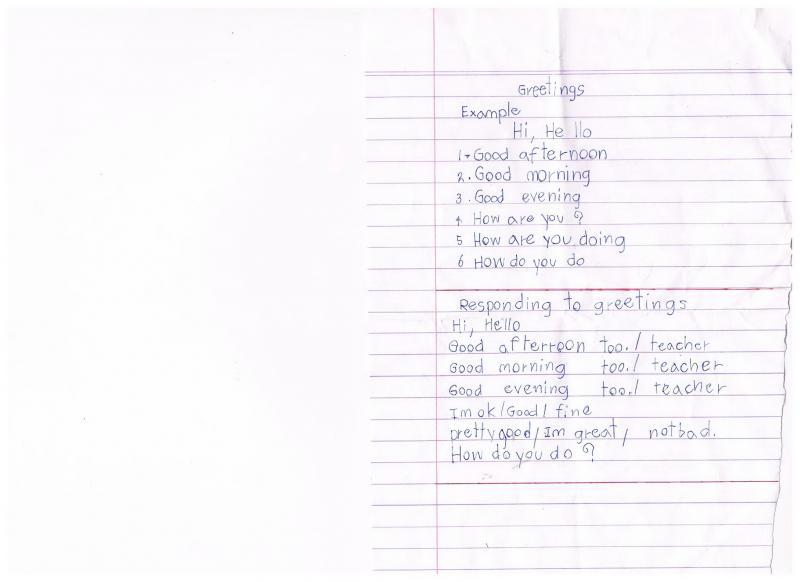 Greetings
Example
Hi, Hello
1. Good afternoon
2. Good morning
3. Good evening
4 How are you ?
5 How are you doing
6 How do you do
Responding to greetings
Hi, Hello
Good afterroon too. / teacher
Good morning too. / teacher
Good evening too. / teacher
Im ok / Good / fine
pretty good / Im great / notbad.
How do you do ?